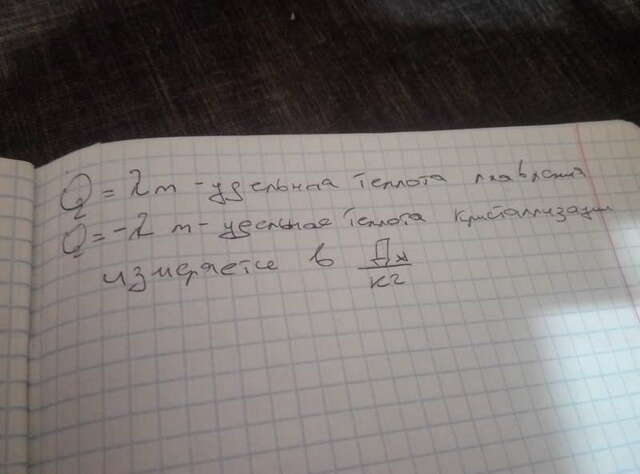 Q = λ m - удельная теплота плавления
Q = - λ m - удельная теплота кристаллизации
измеряется в Дж
кг